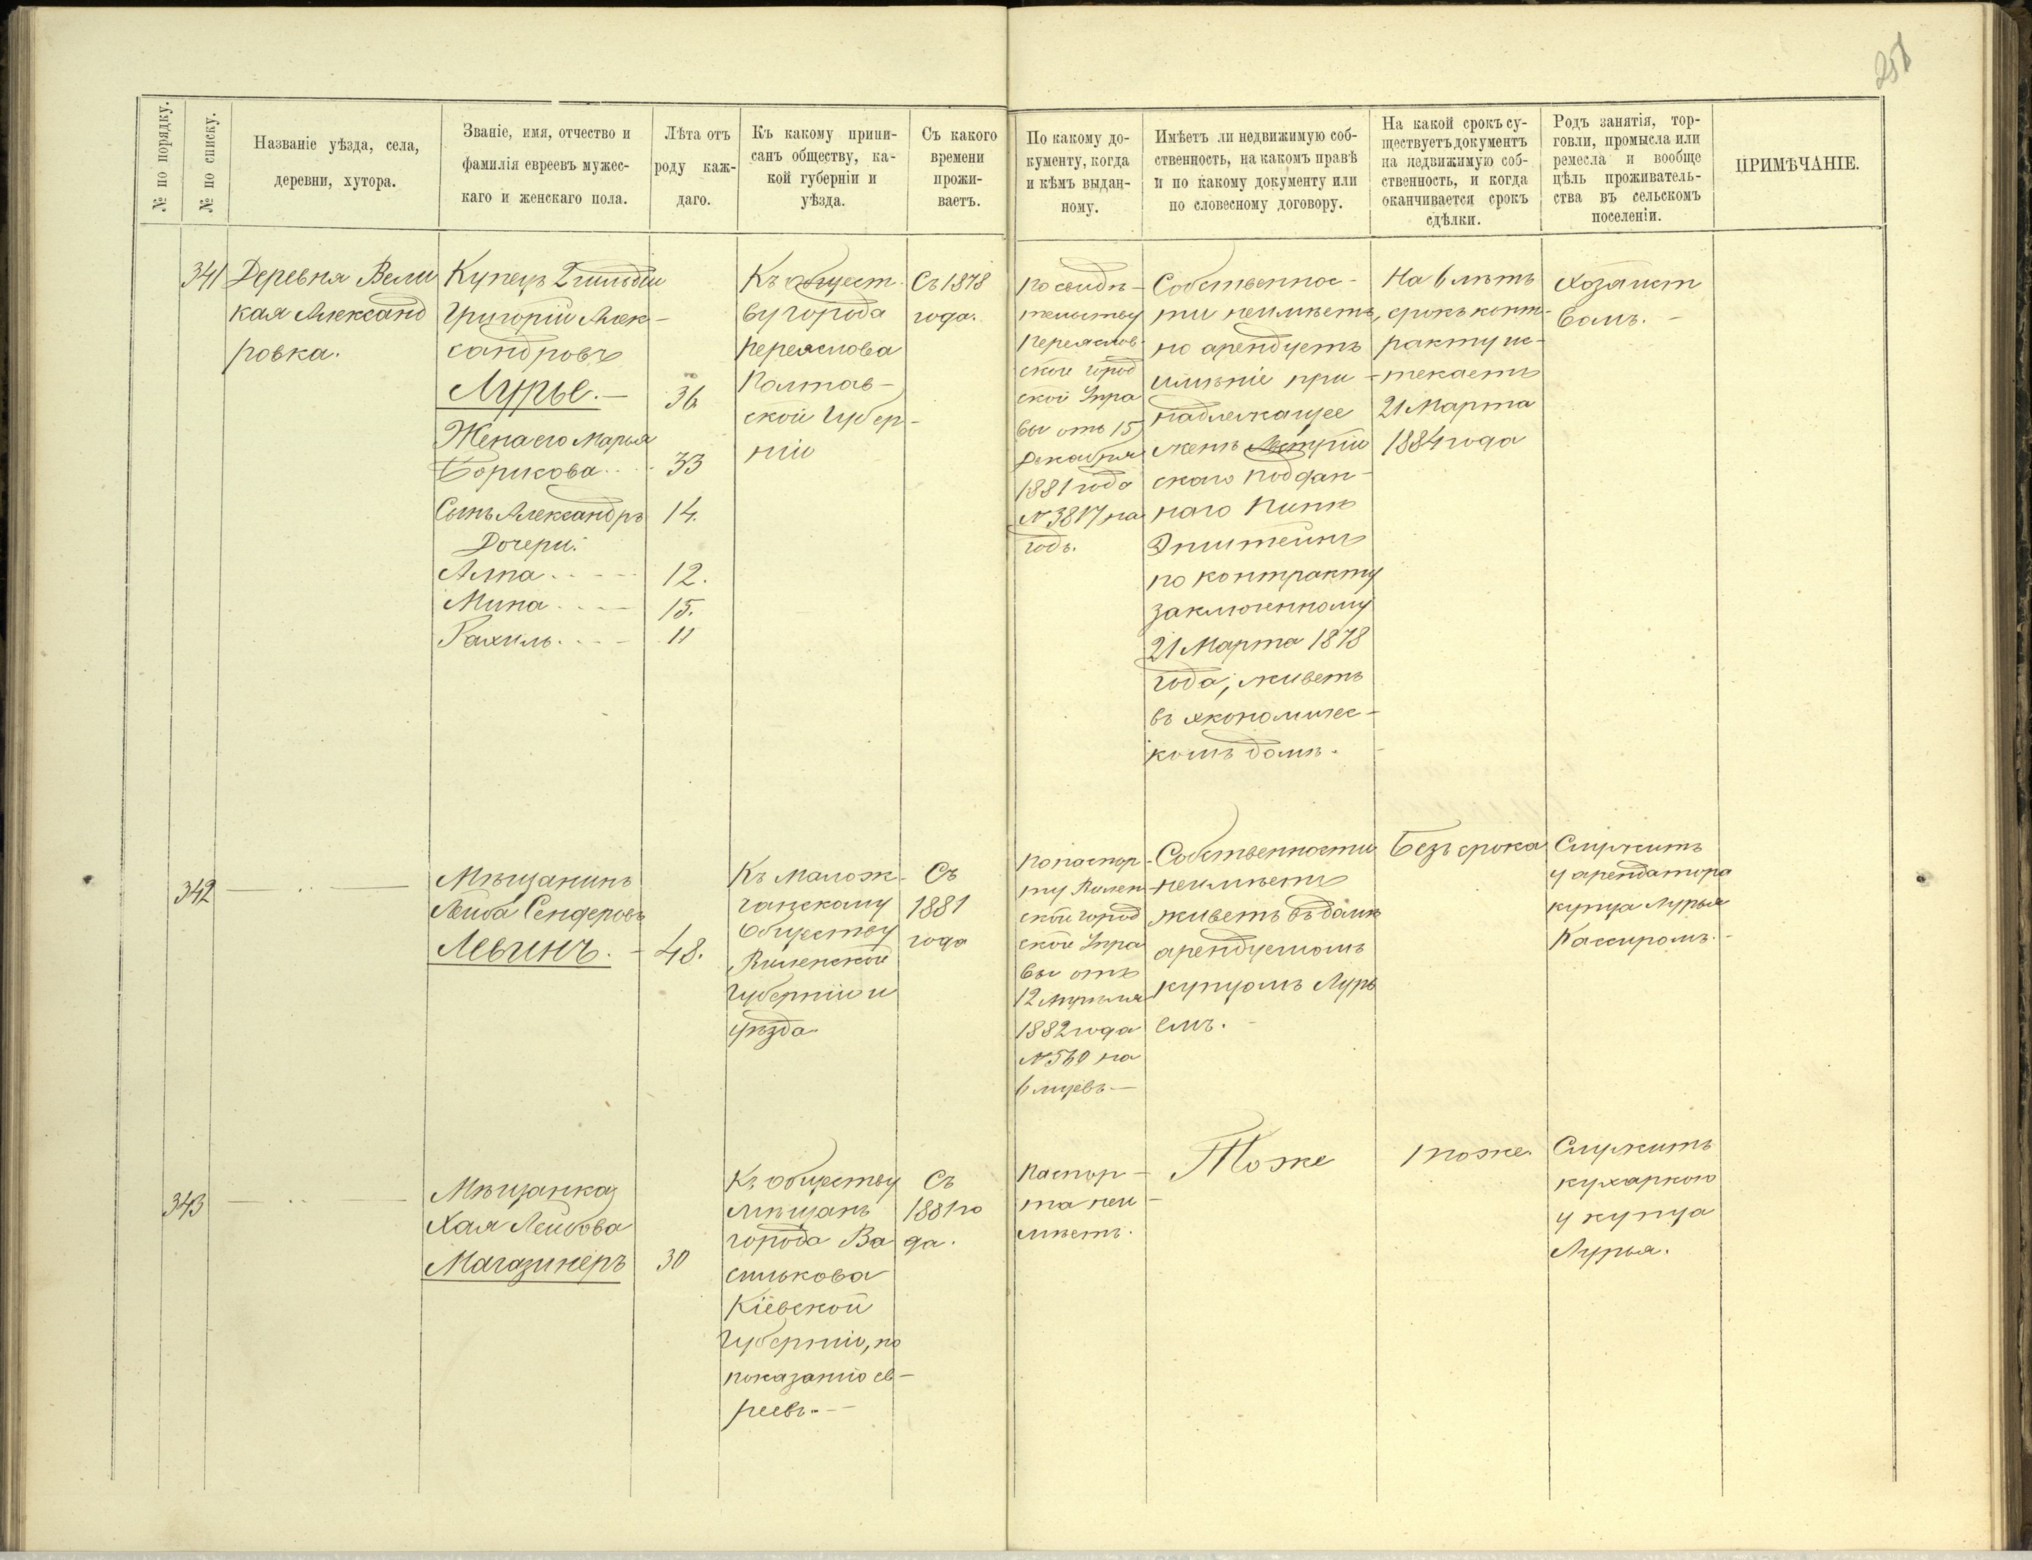 251
№ по порядку.
№ по списку.
Названіе уѣзда, села,
деревни, хутора.
Званіе, имя, отчество и
фамилія евреевъ мужес-
каго и женскаго пола.
Лѣта отъ
роду каж-
даго.
Къ какому припи-
санъ обществу, ка-
кой губерніи и
уѣзда.
Съ какого
времени
прожи-
ваетъ.
По какому до-
кументу, когда
и кѣмъ выдан-
ному.
Имѣетъ ли недвижимую соб-
ственность, на какомъ правѣ
и по какому документу или
по словесному договору.
На какой срокъ су-
ществуетъ документъ
на недвижимую соб-
ственность, и когда
оканчивается срокъ
сдѣлки.
Родъ занятія, тор-
говли, промысла или
ремесла и вообще
цѣль проживатель-
ства въ сельскомъ
поселеніи.
ПРИМѢЧАНІЕ.
341
Деревня Вели
кая Александ
ровка.
Купецъ 2 гильдіи
Григорій Алек-
сандровъ
Лурье.—
Жена его Марья
Борисова
Сынъ Александръ
Дочери:
Анна
Мина
Рахиль
36
33
14.
12.
15.
11
Къ общест-
ву города
Переяслова
Полтав-
ской Губер-
ніи
Съ 1878
года.
По свидѣ-
тельству
Переяслов-
ской Город
ской Упра
вы отъ 15
Декабря
1881 года
№ 3817 на
годъ.
Собственнос-
ти неимѣетъ,
но арендуетъ
имѣніе при-
надлежащее
женѣ Австрій
скаго поддан-
наго
Эпштейнъ
по контракту
заключенному
21 Марта 1878
года, живетъ
въ экономичес-
комъ домѣ.
На 6 лѣтъ
срокъ конт-
ракту ис-
текаетъ
21 Марта
1884 года
Хозяйст
вомъ.—
342
Мѣщанинъ
Лейба Сендеровъ
Левинъ.
48.
Къ Малож-
ганскому
Обществу
Виленской
Губерніи и
уѣзда
Съ
1881
года
По паспор-
ту Вилен-
ской Город
ской Упра
вы отъ
12 Апрѣля
1882 года
№ 560 на
6 мцевъ.—
Собственности
неимѣетъ
живетъ въ домѣ
арендуемомъ
купцомъ Лурь
емъ.—
Безъ срока
Служитъ
у арендатора
купца Лурья
Кассиромъ.—
343
Мѣщанка
Хая Лейбова
Магазинеръ
30
Къ обществу
мѣщанъ
города Ва
силькова
Кіевской
Губерніи, по
показанію ев-
реевъ.—
Съ
1881 го
да.
Паспор-
та неи-
мѣетъ.
Тоже
тоже.
Служитъ
кухаркою
у купца
Лурья.